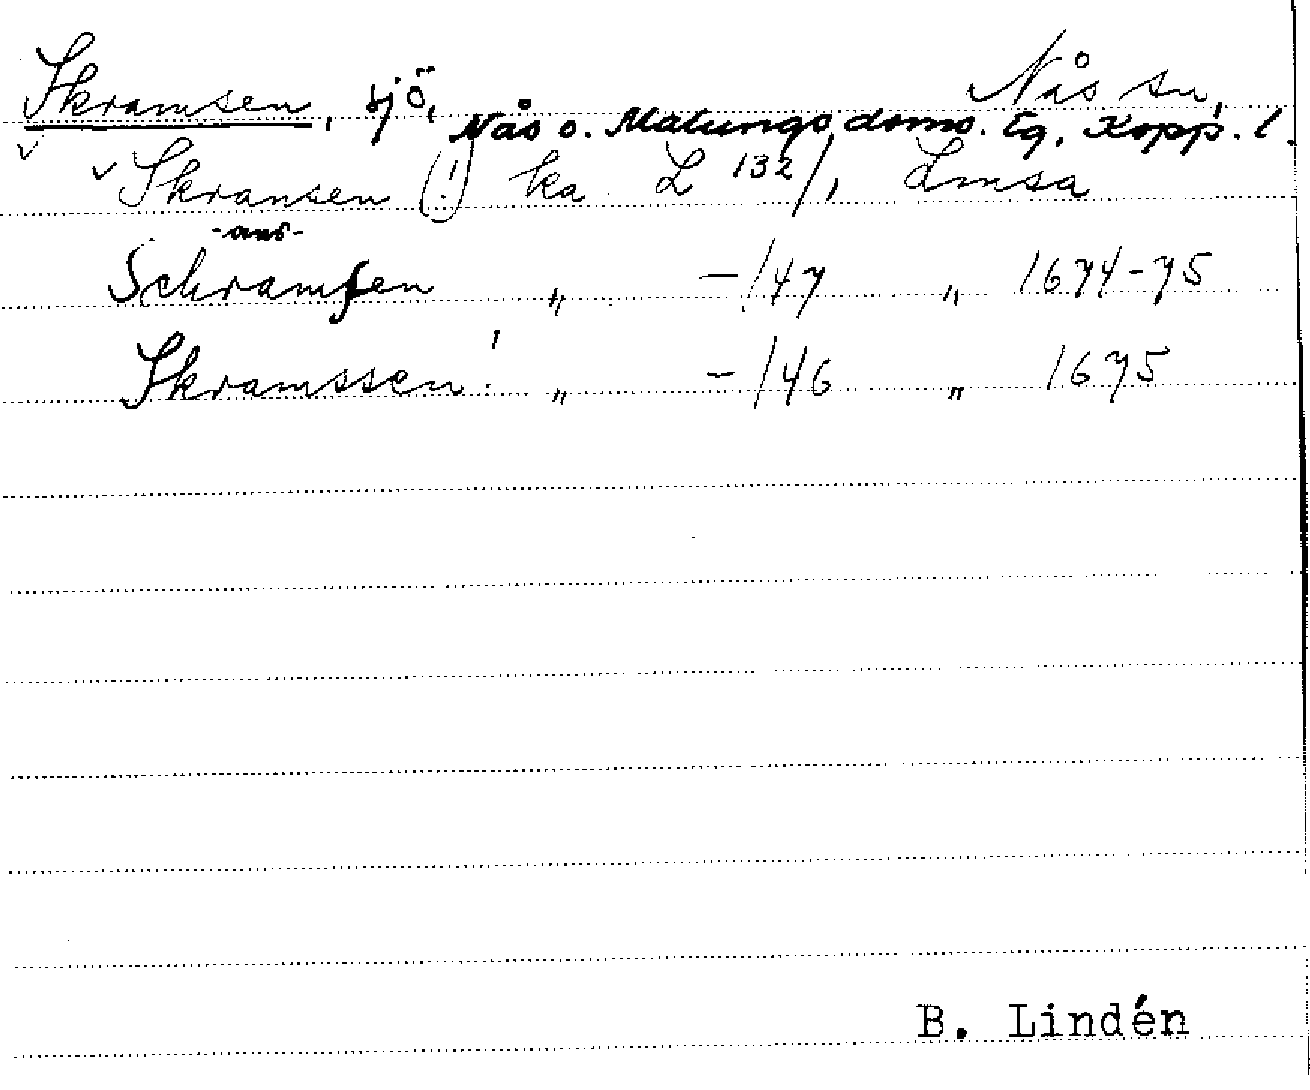 Skramsen, sjö, Nås sn,
Nås o. Malungs doms. tg. Kopp. l.
Skransen (!) ka L 132/, Lmsa
-ans-
Schramsen " -/47 " 1674-75
Skramssen! " -/46 " 1675
B. Lindén